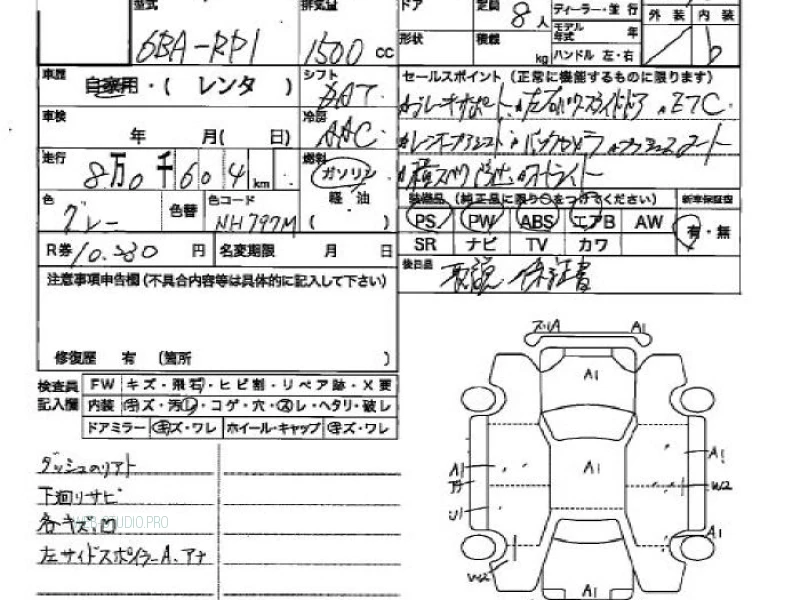 型式 排気量 ドア 定員 8 人 ディーラー・並行
外装 内装
6BA-RP1 1500 cc 形状 積載 kg モデル年式 年
ハンドル 左・右 b
車歴 自家用・( レンタ ) シフト AT セールスポイント (正常に機能するものに限ります)
車検 年 月( 日) 冷房 AAC
走行 8万0千604 km 燃料 ガソリン 軽油 ( )
色 グレー 色替 色コード NH797M
装備品 (純正品に限り○をつけてください) 新車保証書
PS PW ABS エアB AW 有・無
SR ナビ TV カワ
R券 10.280 円 名変期限 月 日
後日品 取説 保証書
注意事項申告欄(不具合内容等は具体的に記入して下さい)
修復歴 有 (箇所 )
検査員記入欄 FW キズ・飛石・ヒビ割・リペア跡・X要
内装 キズ・汚レ・コゲ・穴・スレ・ヘタリ・破レ
ドアミラー キズ・ワレ ホイール・キャップ キズ・ワレ
ダッシュのリアト
下廻りサビ
各キズ、凹
左サイドスポイラーA、アナ
WEB-STUDIO.PRO
A1
A1
A1
A1 A1
W2
U1
A1
W2
A1